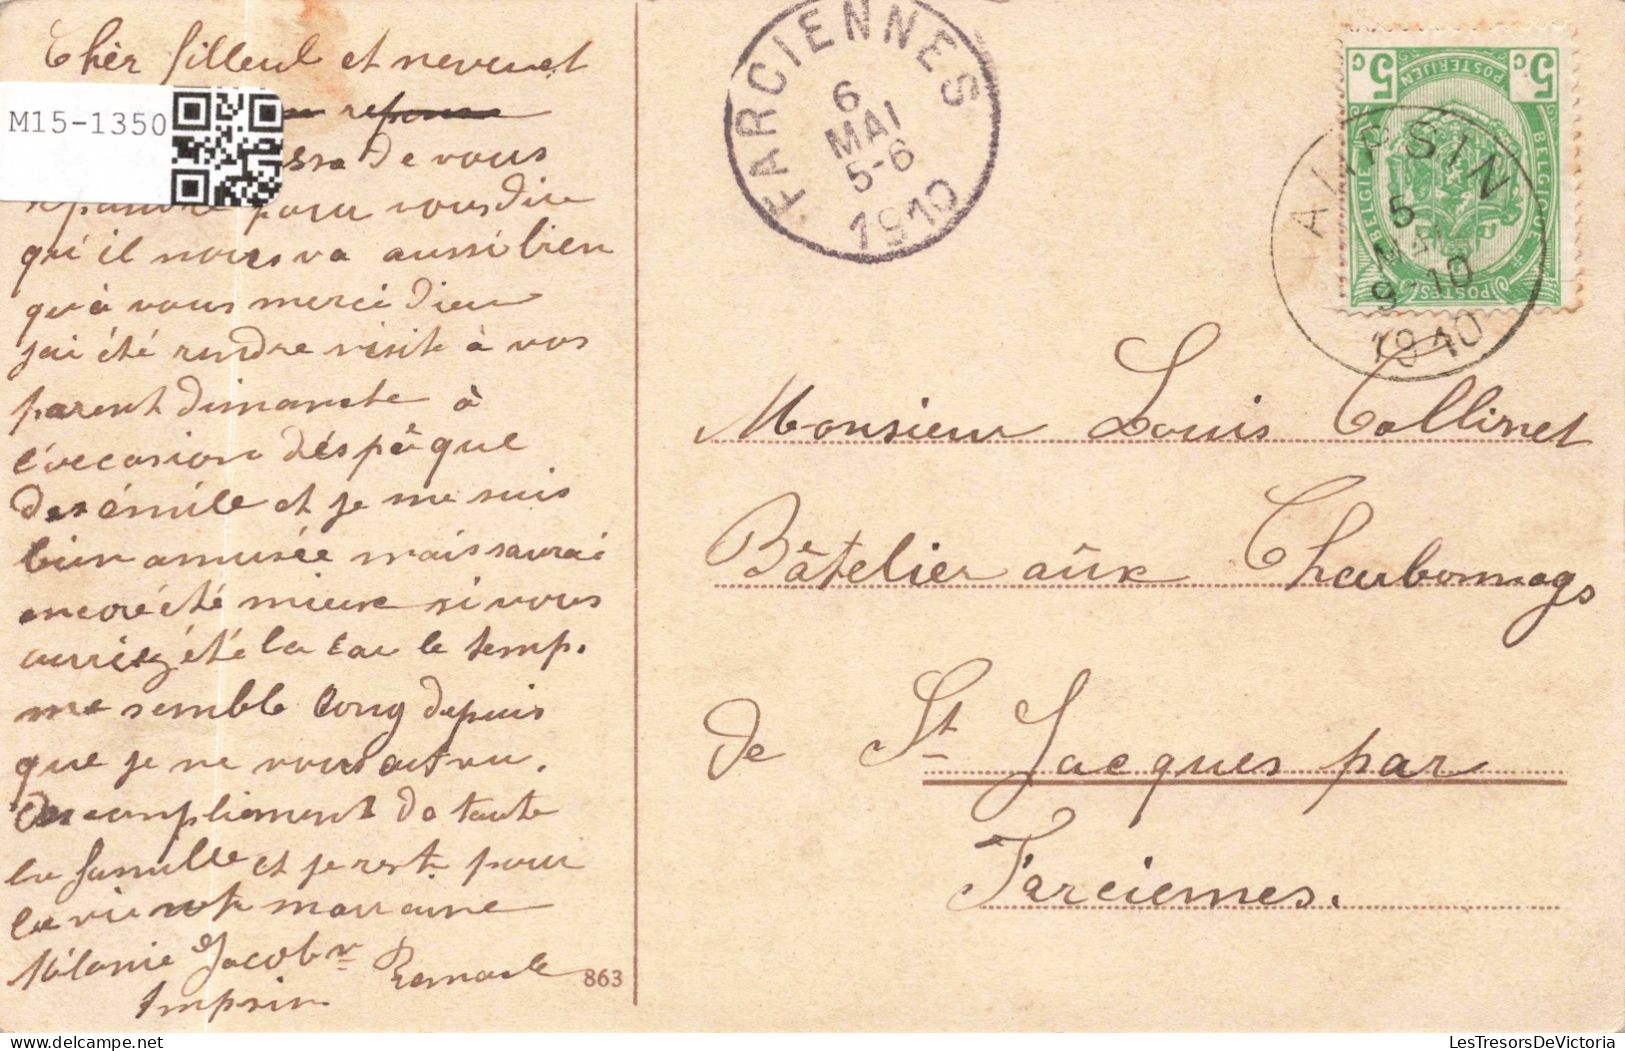 Chèr filleul et neveu et
M15-1350
reponse
de vous
pour vous dire
qu'il nous va aussi bien
qu'à vous merci dieu
jai été rendre visite à vos
parent dimanche à
l'occasion des pâque
des émile et je me suis
bien amusée mais saurai
encore été mieux si vous
auriez été la car le temp.
me semble long depuis
que je ne vous est vu.
Des compliment de toute
la famille et je reste pour
la vie votre marraine
Mélanie Jacob
Ampsin
863
FARCIENNES
6
MAI
5-6
1910
5 c 5 c
POSTERIJEN
BELGIE BELGIQUE
POSTES
AMPSIN
5
MAI
9-10
1910
Monsieur Louis Collinet
Bâtelier aûx Charbonnags
de St Jacques par
Farciennes.
LesTresorsDeVictoria